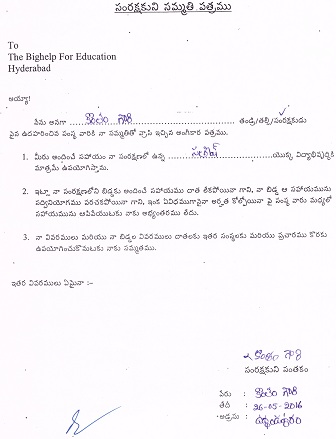 సంరక్షకుని సమ్మతి పత్రము
To
The Bighelp For Education
Hyderabad
అయ్యా!
నేను అనగా గౌరి తండ్రి/తల్లి/సంరక్షకుడు
పైన ఉదహరించిన సంస్థ వారికి నా సమ్మతితో వ్రాసి ఇచ్చిన అంగీకార పత్రము.
1. మీరు అందించే సహాయం నా సంరక్షణలో ఉన్న యొక్క విద్యాభివృద్ధికి
మాత్రమే ఉపయోగిస్తాను.
2. ఇట్లా నా సంరక్షణలోని బిడ్డకు అందించే సహాయము దాత లేకపోయినా గాని, నా బిడ్డ ఆ సహాయమును
సద్వినియోగము పరచకపోయినా గాని, ఇంక ఏవిధముగానైనా అర్హత కోల్పోయినా పై సంస్థ వారు మధ్యలో
సహాయమును ఆపివేయుటకు నాకు అభ్యంతరము లేదు.
3. నా వివరములు మరియు నా బిడ్డల వివరములు దాతలకు ఇతర సంస్థలకు మరియు ప్రచారము కొరకు
ఉపయోగించుకొనుటకు నాకు సమ్మతము.
ఇతర వివరములు ఏమైనా :-
గౌరి
సంరక్షకుని సంతకం
పేరు : గౌరి
తేదీ : 26-05-2016
అడ్రసు :